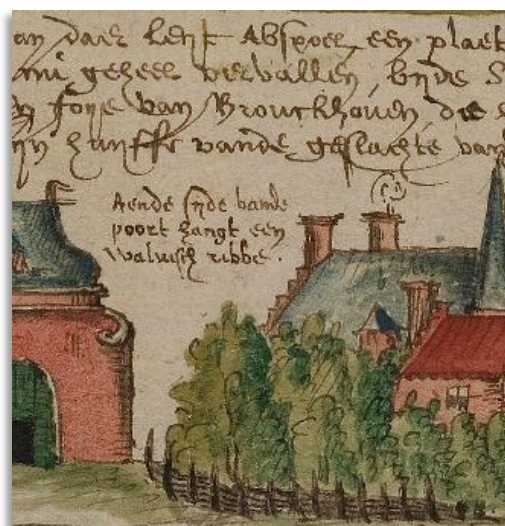 an daer leyt Abspoel, een plaet
nu geheel vervallen, byde S
Joye van Brouckhoven, die
huysse vande geslachte van
Aende syde vande
poort hangt een
walvisch ribbe.